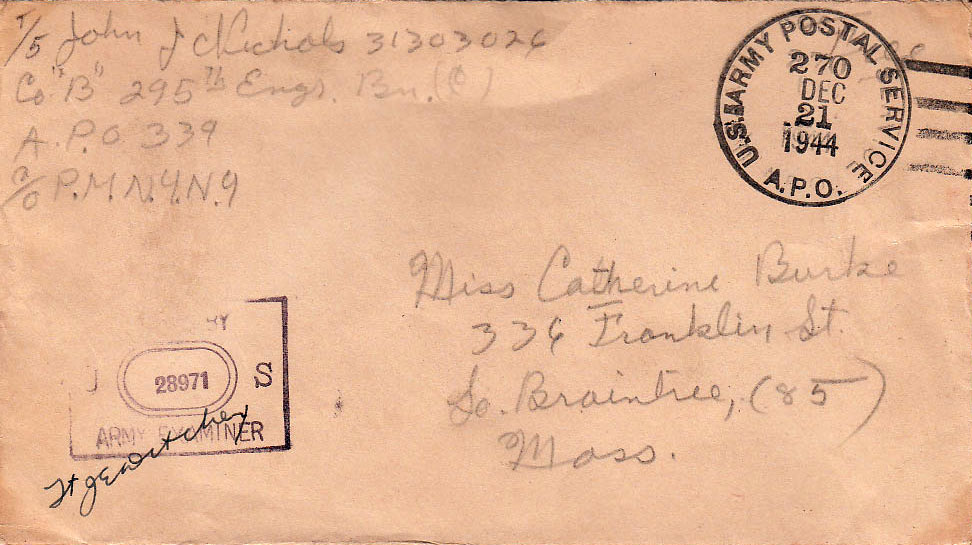 T/5 John J Nichols 31303026
Co "B" 295th Engr. Bn. (C)
A.P.O. 339
c/o P.M.N.Y.N.Y
U.S. ARMY POSTAL SERVICE
270
DEC
21
1944
A.P.O.
Miss Catherine Burke
336 Franklin St.
So. Braintree, (85)
Mass.
S
28971
ARMY EXAMINER